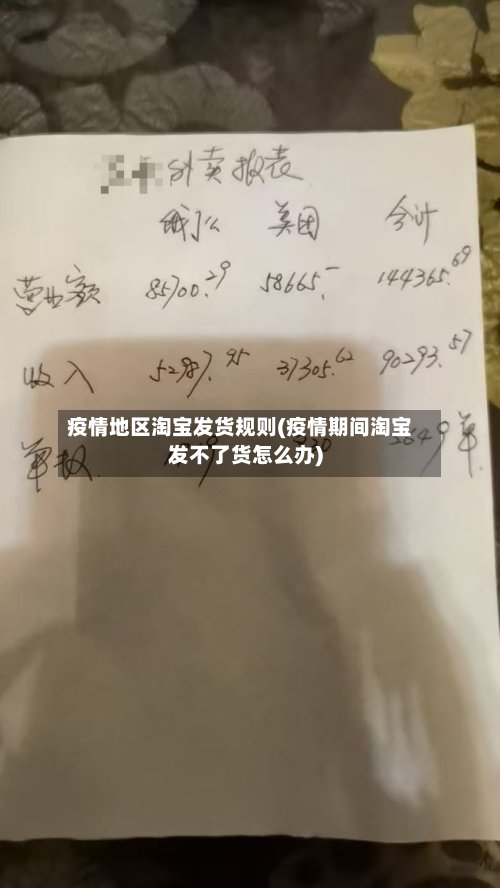 外卖报表
饿了么 美团 合计
营业额 85700.29 58665.- 144365.69
收入 52987.95 37305.62 90293.57
疫情地区淘宝发货规则(疫情期间淘宝
发不了货怎么办)
单数 单